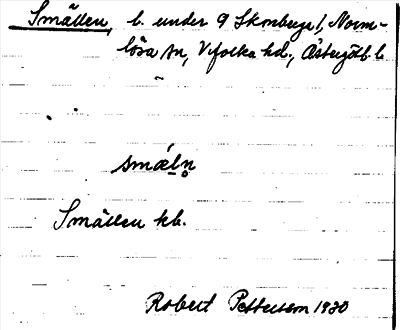 Smällen, b. under 9 Skruberga 1, Norm-
lösa sn, Vifolka hd., Östergötl. l.
smǽln̥
Smällen kb.
Robert Pettersson 1930